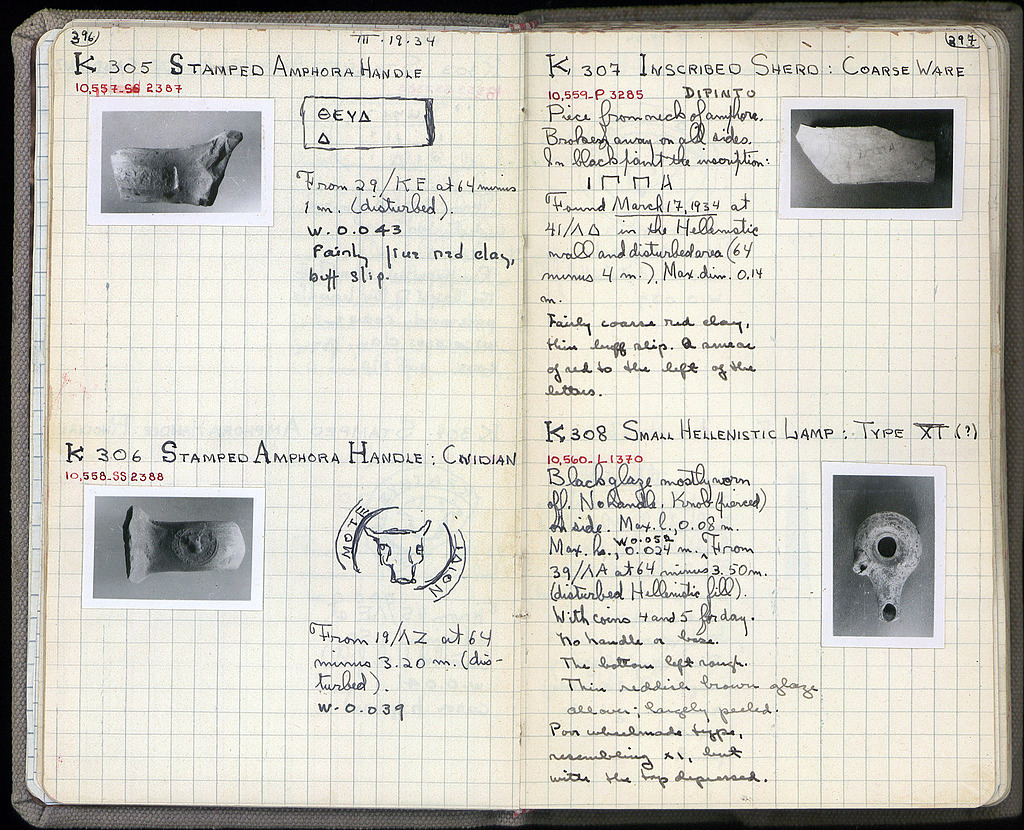 396
III·19·34
K 305 STAMPED AMPHORA HANDLE
10,557-SS 2387
ΘΕΥΔ
Δ
From 29/ΚΕ at 64 minus
1 m. (disturbed).
W. 0.043
Fairly fine red clay,
buff slip.
K 306 STAMPED AMPHORA HANDLE: CNIDIAN
10,558-SS 2388
From 19/ΛΖ at 64
minus 3.20 m. (dis-
turbed).
W. 0.039
297
K 307 INSCRIBED SHERD: COARSE WARE
10,559-P 3285 DIPINTO
Piece from neck of amphora.
Broken away on all sides.
In black paint the inscription:
Found March 17, 1934 at
41/ΛΔ in the Hellenistic
wall and disturbed area (64
minus 4 m.). Max. dim. 0.14
m.
Fairly coarse red clay,
thin buff slip. A smear
of red to the left of the
letters.
K 308 SMALL HELLENISTIC LAMP: TYPE XI (?)
10,560-L1370
Black glaze mostly worn
off. No handle. Knob (pierced)
on side. Max. l., 0.08 m.
W 0.052
Max. h., 0.024 m. From
39/ΛΑ at 64 minus 3.50 m.
(disturbed Hellenistic fill).
With coins 4 and 5 for day.
No handle or base.
The bottom left rough.
Thin reddish brown glaze
all over; largely peeled.
Poor wheelmade type,
resembling XI, but
with the top depressed.